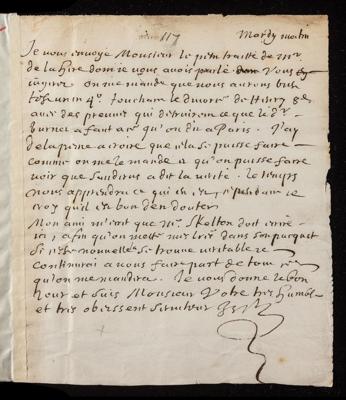 117
Mardy matin
Je vous envoye Monsieur le petit traitté de Mr.
de la hire dont je vous avois parlé vous
on me mande que nous aurons bien
tost un in 4°. touchant le divorce de Henry 8e
avec des preuves qui detruiront ce que le Dr.
Burnet a fait a ce qu'on dit a Paris. J'ay
de la peine a croire que cela se puisse faire
comme on me le mande et qu'on puisse faire
voir que Sanderus a dit la verité. le temps
nous apprendra ce qui en est, cependant je
croy qu'il est bon d'en douter
Mon ami m'ecrit que Mr. Skelton doit
ici, afin qu'on mette mes dans son pacquet
Si cette nouvelle se trouve veritable je
continuerai a vous faire part de tout ce
qu'on me mandera. Je vous donne le bon
Jour et suis Monsieur Votre tres humble
et tres obeissent serviteur